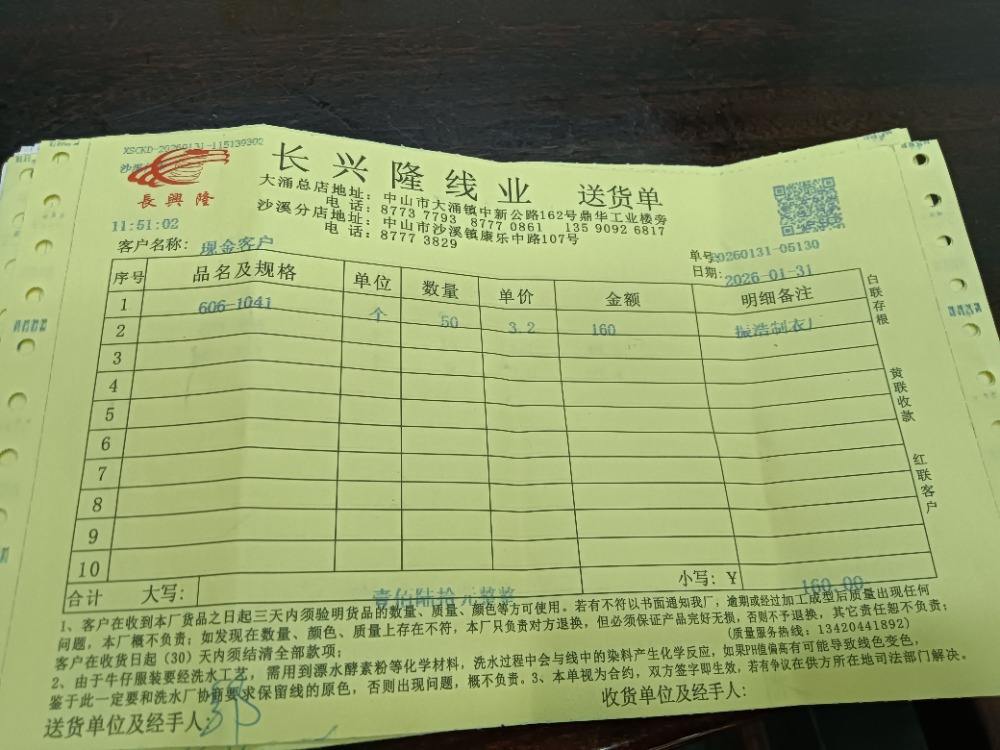 XSCKD-20260131-115139302
長興隆
长兴隆线业 送货单
大涌总店地址：中山市大涌镇中新公路162号鼎华工业楼旁
电 话：8773 7793 8777 0861 135 9092 6817
沙溪分店地址：中山市沙溪镇康乐中路107号
电 话：8777 3829
11:51:02
客户名称：现金客户
单号:20260131-05130
日期:2026-01-31
序号 品名及规格 单位 数量 单价 金额 明细备注
1 606-1041 个 50 3.2 160 振浩制衣厂
2
3
4
5
6
7
8
9
10
合计 大写： 壹佰陆拾元整 小写：￥ 160.00
白联存根
黄联收款
红联客户
1、客户在收到本厂货品之日起三天内须验明货品的数量、质量、颜色等方可使用。若有不符以书面通知我厂，逾期或经过加工成型后质量出现任何
问题，本厂概不负责；如发现在数量、颜色、质量上存在不符，本厂只负责对方退换，但必须保证产品完好无损，否则不予退换，其它责任恕不负责；
客户在收货日起（30）天内须结清全部款项；
(质量服务热线：13420441892)
2、由于牛仔服装要经洗水工艺，需用到漂水酵素粉等化学材料，洗水过程中会与线中的染料产生化学反应，如果PH值偏高有可能导致线色变色，
鉴于此一定要和洗水厂协商要求保留线的原色，否则出现问题，概不负责。3、本单视为合约，双方签字即生效，若有争议在供方所在地司法部门解决。
送货单位及经手人：
收货单位及经手人：